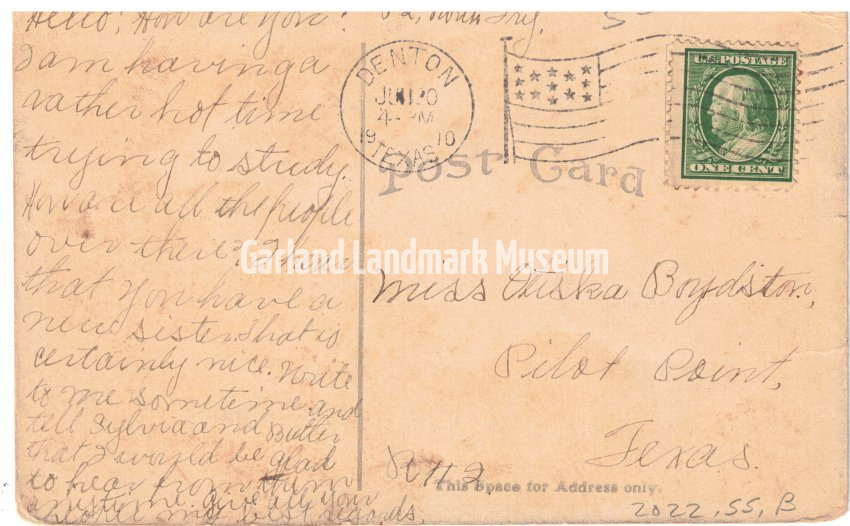 Hello! How are you?
I am having a
rather hot time
trying to study.
How are all the people
over there? I hear
that you have a
new sister. That is
certainly nice. Write
to me sometime and
tell Sylvia and Butler
that I would be glad
to hear from them
anytime. Give all your
my best regards.
DENTON
JUL 20
4 PM
1910
TEXAS
U.S. POSTAGE
ONE CENT
Post Card
Garland Landmark Museum
Miss Boydston,
Pilot Point,
Texas.
R#2,
This Space for Address only.
2022.55.B